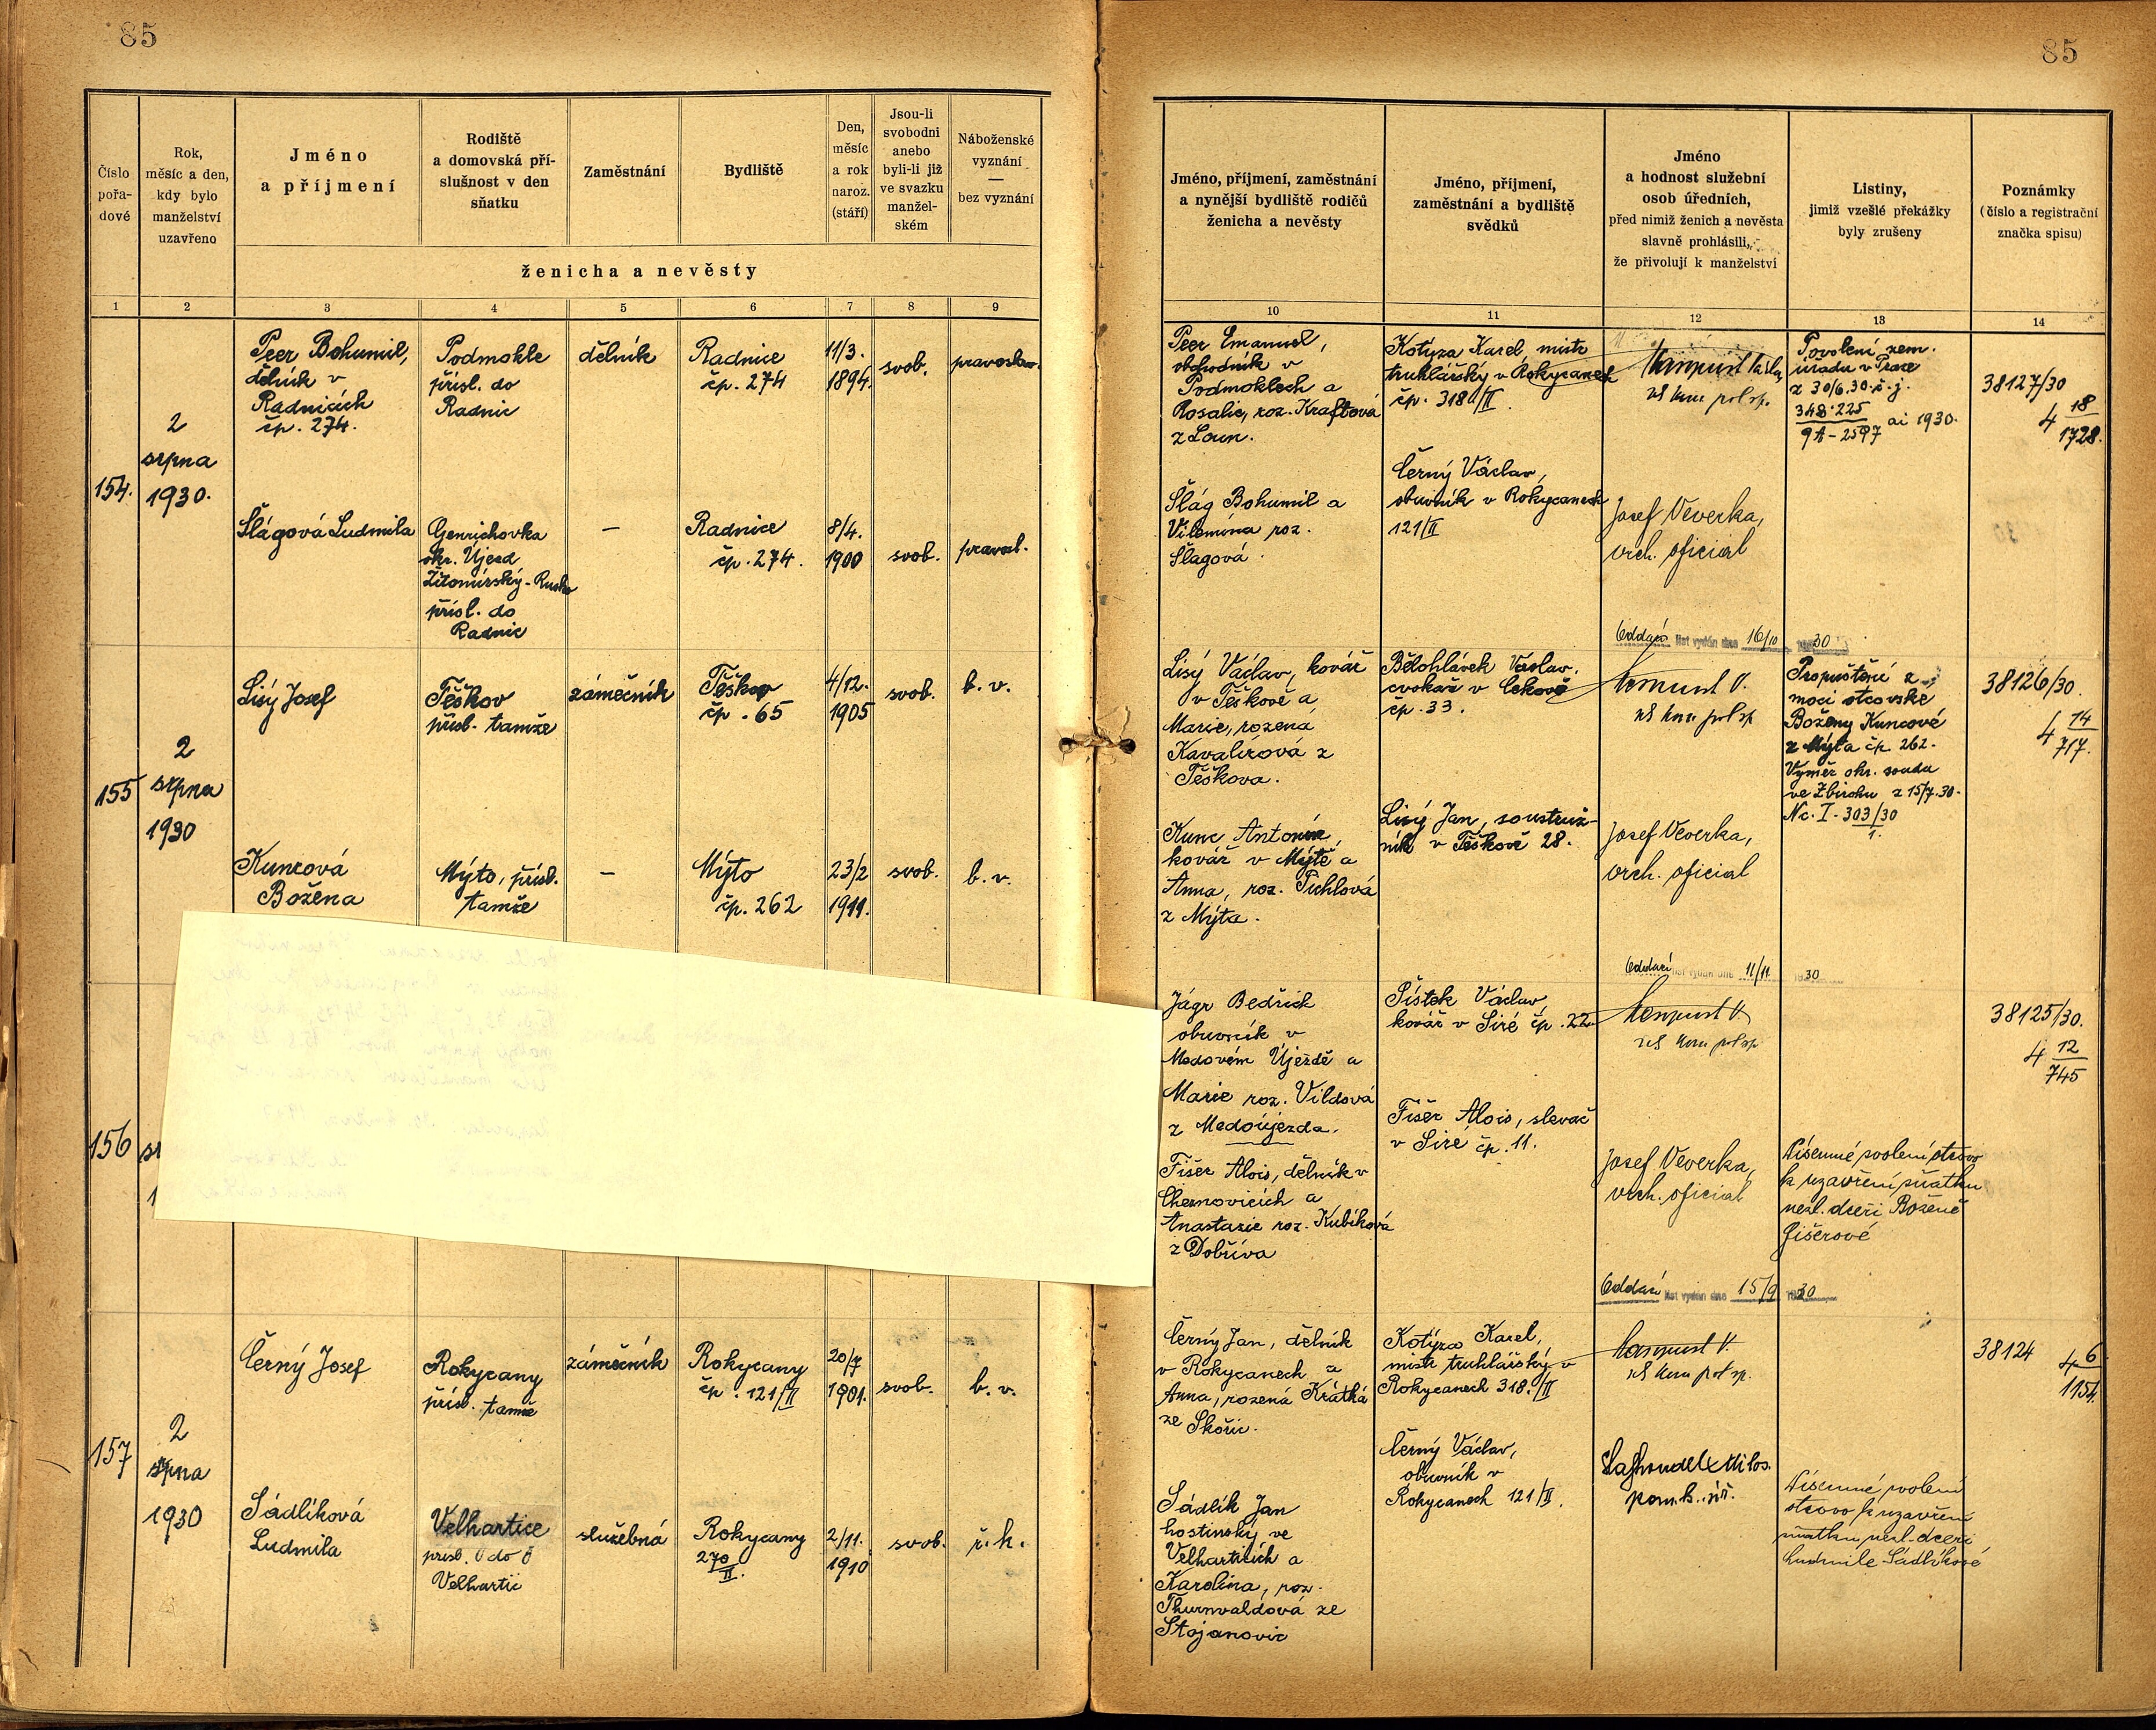 85
85
Číslo
pořa-
dové
Rok,
měsíc a den,
kdy bylo
manželství
uzavřeno
Jméno
a příjmení
Rodiště
a domovská pří-
slušnost v den
sňatku
Zaměstnání
Bydliště
Den,
měsíc
a rok
naroz.
(stáří)
Jsou-li
svobodni
anebo
byli-li již
ve svazku
manžel-
ském
Náboženské
vyznání
—
bez vyznání
ženicha a nevěsty
Jméno, příjmení, zaměstnání
a nynější bydliště rodičů
ženicha a nevěsty
Jméno, příjmení,
zaměstnání a bydliště
svědků
Jméno
a hodnost služební
osob úředních,
před nimiž ženich a nevěsta
slavně prohlásili,
že přivolují k manželství
Listiny,
jimiž vzešlé překážky
byly zrušeny
Poznámky
(číslo a registrační
značka spisu)
1 2 3 4 5 6 7 8 9 10 11 12 13 14
154.
2
srpna
1930.
Peer Bohumil,
dělník v
Radnicích
čp. 274.
Podmokle
přísl. do
Radnic
dělník
Radnice
čp. 274
11/3.
1894.
svob.
pravoslav.
Šlágová Ludmila
Genrichovka
okr. Újezd
Žitomírský - Rusko
přísl. do
Radnic
—
Radnice
čp. 274.
8/4.
1900
svob.
pravosl.
Peer Emanuel,
obchodník v
Podmoklech a
Rosalie, roz. Kraftová
z Loun.
Šlág Bohumil a
Vilemína roz.
Šlagová.
Kotýza Karel, mistr
truhlářský v Rokycanech
čp. 318/II.
Černý Václav,
obuvník v Rokycanech
121/II
Josef Veverka,
vrch. oficiál
Povolení zem.
úřadu v Praze
z 30/6.30. č. j.
348.225
9A-2597 ai 1930.
38127/30
4 18
1728.
Oddací list vydán dne 16/10 1930
155
2
srpna
1930
Lisý Josef
Těškov
přísl. tamže
zámečník
Těškov
čp. 65
4/12.
1905
svob.
b. v.
Kuncová
Božena
Mýto, přísl.
tamže
—
Mýto
čp. 262
23/2
1911.
svob.
b. v.
Lisý Václav, kovář
v Těškově a
Marie, rozená
Kavalírová z
Těškova.
Kunc Antonín,
kovář v Mýtě a
Anna, roz. Pichlová
z Mýta.
Bělohlávek Václav,
cvokař v Cekově
čp. 33.
Lisý Jan, soustruž-
ník v Těškově 28.
Josef Veverka,
vrch. oficiál
Propuštění z
moci otcovské
Boženy Kuncové
z Mýta čp. 262.
Výměr okr. soudu
ve Zbirohu z 15/7.30.
Nc. I - 303/30
1.
38126/30.
4 14
717.
Oddací list vydán dne 11/11. 1930
156
Jágr Bedřich
obuvník v
Medovém Újezdě a
Marie roz. Vildová
z Medoújezda.
Fišer Alois, dělník v
Cheznovicích a
Anastazie roz. Kubíková
z Dobříva
Pístek Václav,
kovář v Siré čp. 22
Fišer Alois, slevač
v Siré čp. 11.
Josef Veverka,
vrch. oficiál
Písemné svolení otcovo
k uzavření sňatku
nezl. dceři Boženě
Fišerové
38125/30.
4 12
745
Oddací list vydán dne 15/9 1930
157
2
srpna
1930
Černý Josef
Rokycany
přísl. tamže
zámečník
Rokycany
čp. 121/II
20/7
1901.
svob.
b. v.
Sádlíková
Ludmila
Velhartice
přísl. do
Velhartic
služebná
Rokycany
270
II.
2/11.
1910
svob.
ř. k.
Černý Jan, dělník
v Rokycanech a
Anna, rozená Krátká
ze Skořic.
Sádlík Jan
hostinský ve
Velharticích a
Karolina, roz.
Thurnvaldová ze
Stojanovic
Kotýza Karel,
mistr truhlářský v
Rokycanech 318./II
Černý Václav,
obuvník v
Rokycanech 121/II.
Písemné svolení
otcovo k uzavření
sňatku nezl. dceři
Ludmile Sádlíkové
38124
4 6
1154.